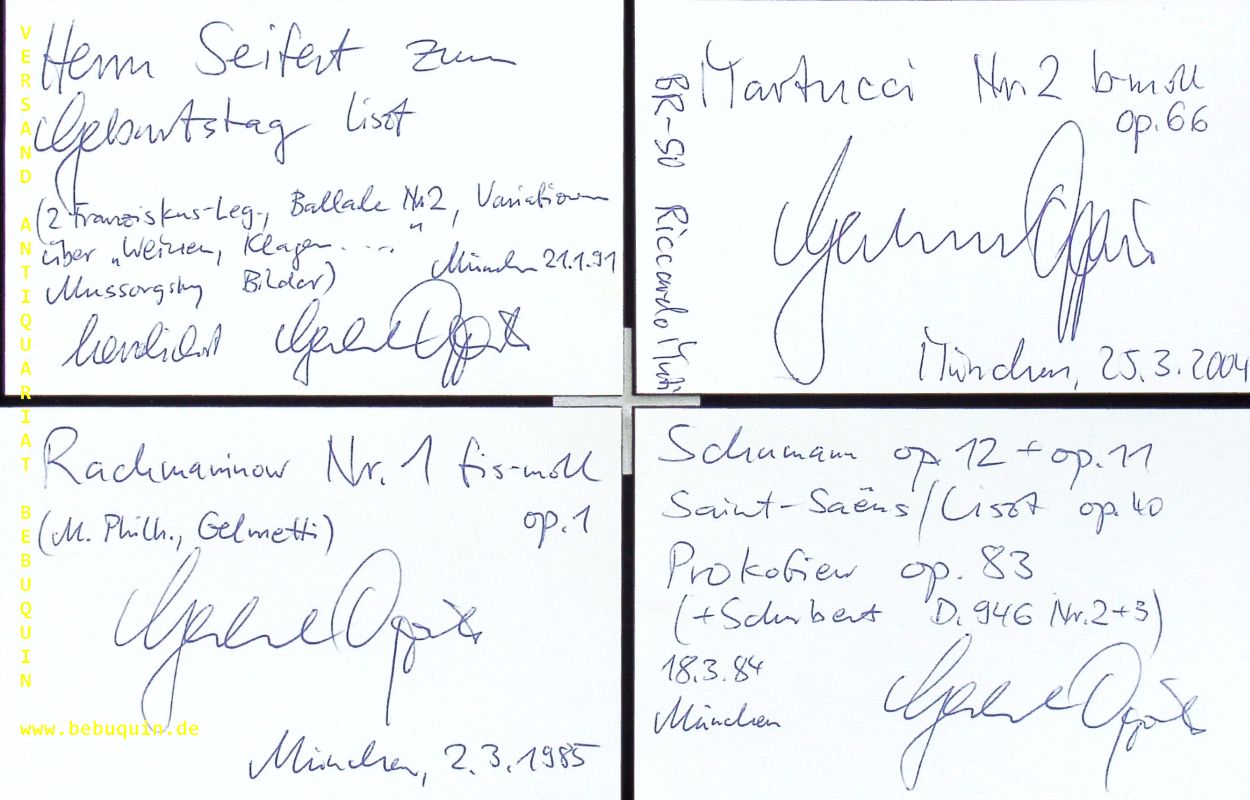 Herrn Seifert zum
Geburtstag Liszt
(2 Franziskus-Leg., Ballade Nr. 2, Variationen
über „Weinen, Klagen ...."
Mussorgsky Bilder) München 21.1.91
herzlichst Gerhard Oppitz
Martucci Nr. 2 b-moll
op. 66
BR-SO Riccardo Muti
Gerhard Oppitz
München, 25.3.2004
Rachmaninow Nr. 1 fis-moll
(M. Philh., Gelmetti) op. 1
Gerhard Oppitz
München, 2.3.1985
Schumann op. 12 + op. 11
Saint-Saëns/Liszt op. 40
Prokofiew op. 83
(+Schubert D. 946 Nr. 2+3)
18.3.84
München Gerhard Oppitz
VERSAND ANTIQUARIAT BEBUQUIN
www.bebuquin.de